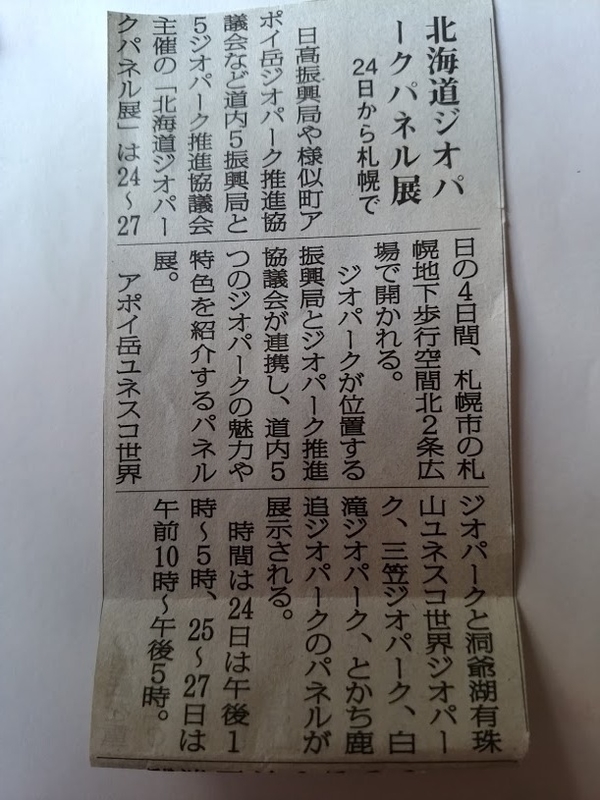 北海道ジオパ
ークパネル展
24日から札幌で
日高振興局や様似町ア
ポイ岳ジオパーク推進協
議会など道内5振興局と
5ジオパーク推進協議会
主催の「北海道ジオパー
クパネル展」は24～27
日の4日間、札幌市の札
幌地下歩行空間北2条広
場で開かれる。
ジオパークが位置する
振興局とジオパーク推進
協議会が連携し、道内5
つのジオパークの魅力や
特色を紹介するパネル
展。
アポイ岳ユネスコ世界
ジオパークと洞爺湖有珠
山ユネスコ世界ジオパー
ク、三笠ジオパーク、白
滝ジオパーク、とかち鹿
追ジオパークのパネルが
展示される。
時間は24日は午後1
時～5時、25～27日は
午前10時～午後5時。